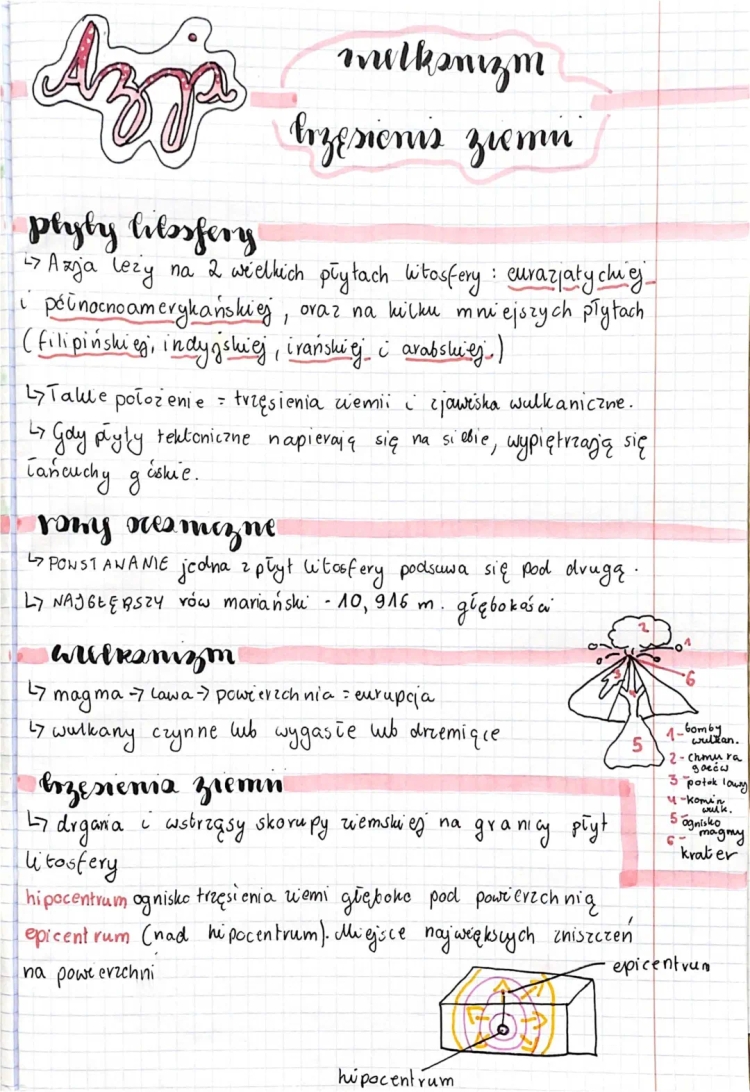 Azja
wulkanizm
trzęsienia ziemii
płyty litosfery
↳ Azja leży na 2 wielkich płytach litosfery : eurazjatyckiej
i północnoamerykańskiej, oraz na kilku mniejszych płytach
(filipińskiej, indyjskiej, irańskiej i arabskiej.)
↳ Takie położenie = trzęsienia ziemii i zjawiska wulkaniczne.
↳ Gdy płyty tektoniczne napierają się na siebie, wypiętrzają się
łańcuchy górskie.
rowy oceaniczne
↳ POWSTAWANIE jedna z płyt litosfery podsuwa się pod drugą.
↳ NAJGŁĘBSZY rów mariański - 10,916 m. głębokości
wulkanizm
↳ magma → lawa → powierzchnia = eurupcja
↳ wulkany czynne lub wygasłe lub drzemiące
2
1
3
6
4
5
1-bomby
wulkan.
2-chmura
gazów
3-potok lawy
4-komin
wulk.
5-ognisko
magmy
6-
krater
trzęsienia ziemii
↳ drgania i wstrząsy skorupy ziemskiej na granicy płyt
litosfery
hipocentrum ognisko trzęsienia ziemi głęboko pod powierzchnią
epicentrum (nad hipocentrum). Miejsce największych zniszczeń
na powierzchni
epicentrum
hipocentrum